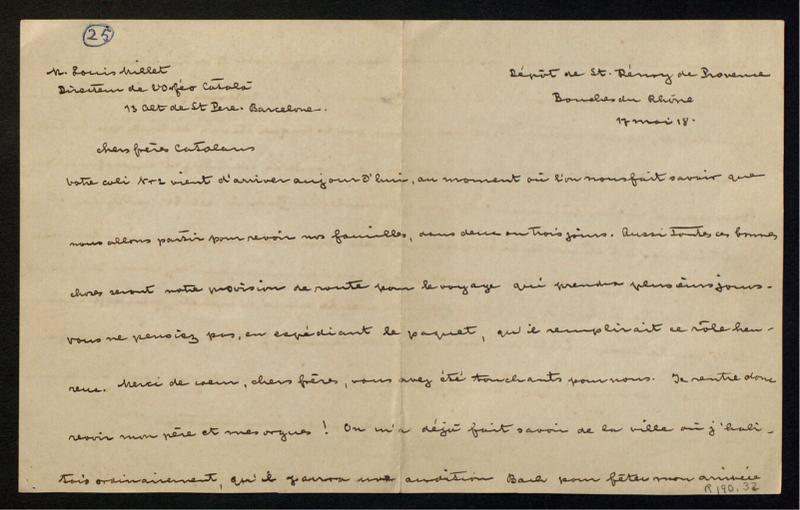 25
M. Louis Millet
Directeur de l'Orféo Català
13 Alt de St Pere. Barcelone.
Dépôt de St. Rémy de Provence
Bouches du Rhône
17 mai 18.
chers frères Catalans
votre coli Nr 2 vient d'arriver aujourd'hui, au moment où l'on nous fait savoir que
nous allons partir pour revoir nos familles, dans deux ou trois jours. Aussi toutes ces bonnes
choses seront notre provision de route pour le voyage qui prendra plusieurs jours.
vous ne pensiez pas, en expédiant le paquet, qu'il remplirait ce rôle heu-
reux. Merci de coeur, chers frères, vous avez été touchants pour nous. Je rentre donc
revoir mon père et mes orgues ! On m'a déjà fait savoir de la ville où j'habi-
tais ordinairement, qu'il y aura une audition Bach pour fêter mon arrivée
R 190.32